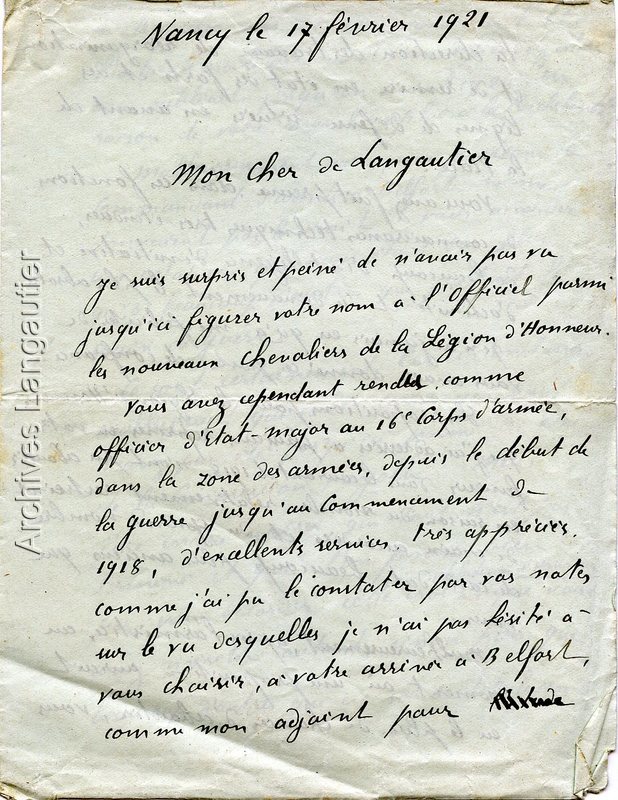 Nancy le 17 février 1921
Mon Cher de Langautier
Je suis surpris et peiné de n'avoir pas vu
jusqu'ici figurer votre nom à l'Officiel parmi
les nouveaux Chevaliers de la Légion d'Honneur.
Vous avez cependant rendu, comme
officier d'Etat-major au 16e Corps d'armée,
dans la zone des armées, depuis le début de
la guerre jusqu'au commencement de
1918, d'excellents services très appréciés.
comme j'ai pu le constater par vos notes
sur le vu desquelles je n'ai pas hésité à
vous choisir, à votre arrivée à Belfort,
comme mon adjoint pour
Archives Langautier